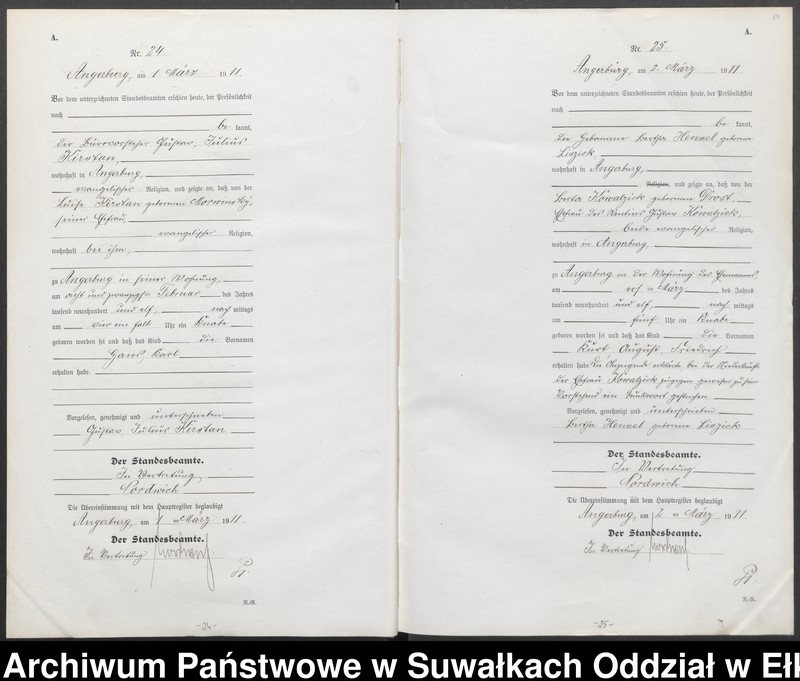 A.
Nr. 24
Angerburg, am 1. März 1911.
Vor dem unterzeichneten Standesbeamten erschien heute, der Persönlichkeit
nach
be kannt,
der Bürovorsteher Gustav, Julius
Kirstan,
wohnhaft in Angerburg,
evangelischer Religion, und zeigte an, daß von der
Luise Kirstan geborenen
seiner Ehefrau,
evangelischer Religion,
wohnhaft bei ihm,
zu Angerburg in seiner Wohnung,
am acht und zwanzigsten Februar des Jahres
tausend neunhundert und elf, nach mittags
um vier ein halb Uhr ein Knabe
geboren worden sei und daß das Kind die Vornamen
Hans, Karl
erhalten habe.
Vorgelesen, genehmigt und unterschrieben
Gustav Julius Kirstan
Der Standesbeamte.
In Vertretung
Nordwich
Die Übereinstimmung mit dem Hauptregister beglaubigt
Angerburg, am 1. März 1911.
Der Standesbeamte.
In Vertretung
R.-R.
-24-
A.
Nr. 25.
Angerburg, am 2. März 1911.
Vor dem unterzeichneten Standesbeamten erschien heute, der Persönlichkeit
nach
be kannt,
die Hebamme Bertha Hensel geborene
wohnhaft in Angerburg,
Religion, und zeigte an, daß von der
Berta Kowalzick geborenen Drost,
Ehefrau des Rentiers Gustav Kowalzick,
beide evangelischer Religion,
wohnhaft in Angerburg,
zu Angerburg in der Wohnung des Ehemannes,
am ersten März des Jahres
tausend neunhundert und elf, nach mittags
um fünf Uhr ein Knabe
geboren worden sei und daß das Kind die Vornamen
Kurt, August, Friedrich
erhalten habe. Die Anzeigende erklärte bei der Niederkunft
der Ehefrau Kowalzick zugegen gewesen zu sein.
Vorstehend ein Druckwort gestrichen.
Vorgelesen, genehmigt und unterschrieben
Bertha Hensel geborene
Der Standesbeamte.
In Vertretung
Nordwich
Die Übereinstimmung mit dem Hauptregister beglaubigt
Angerburg, am 2. März 1911.
Der Standesbeamte.
In Vertretung
R.-R.
-25-
Archiwum Państwowe w Suwałkach Oddział w Ełk